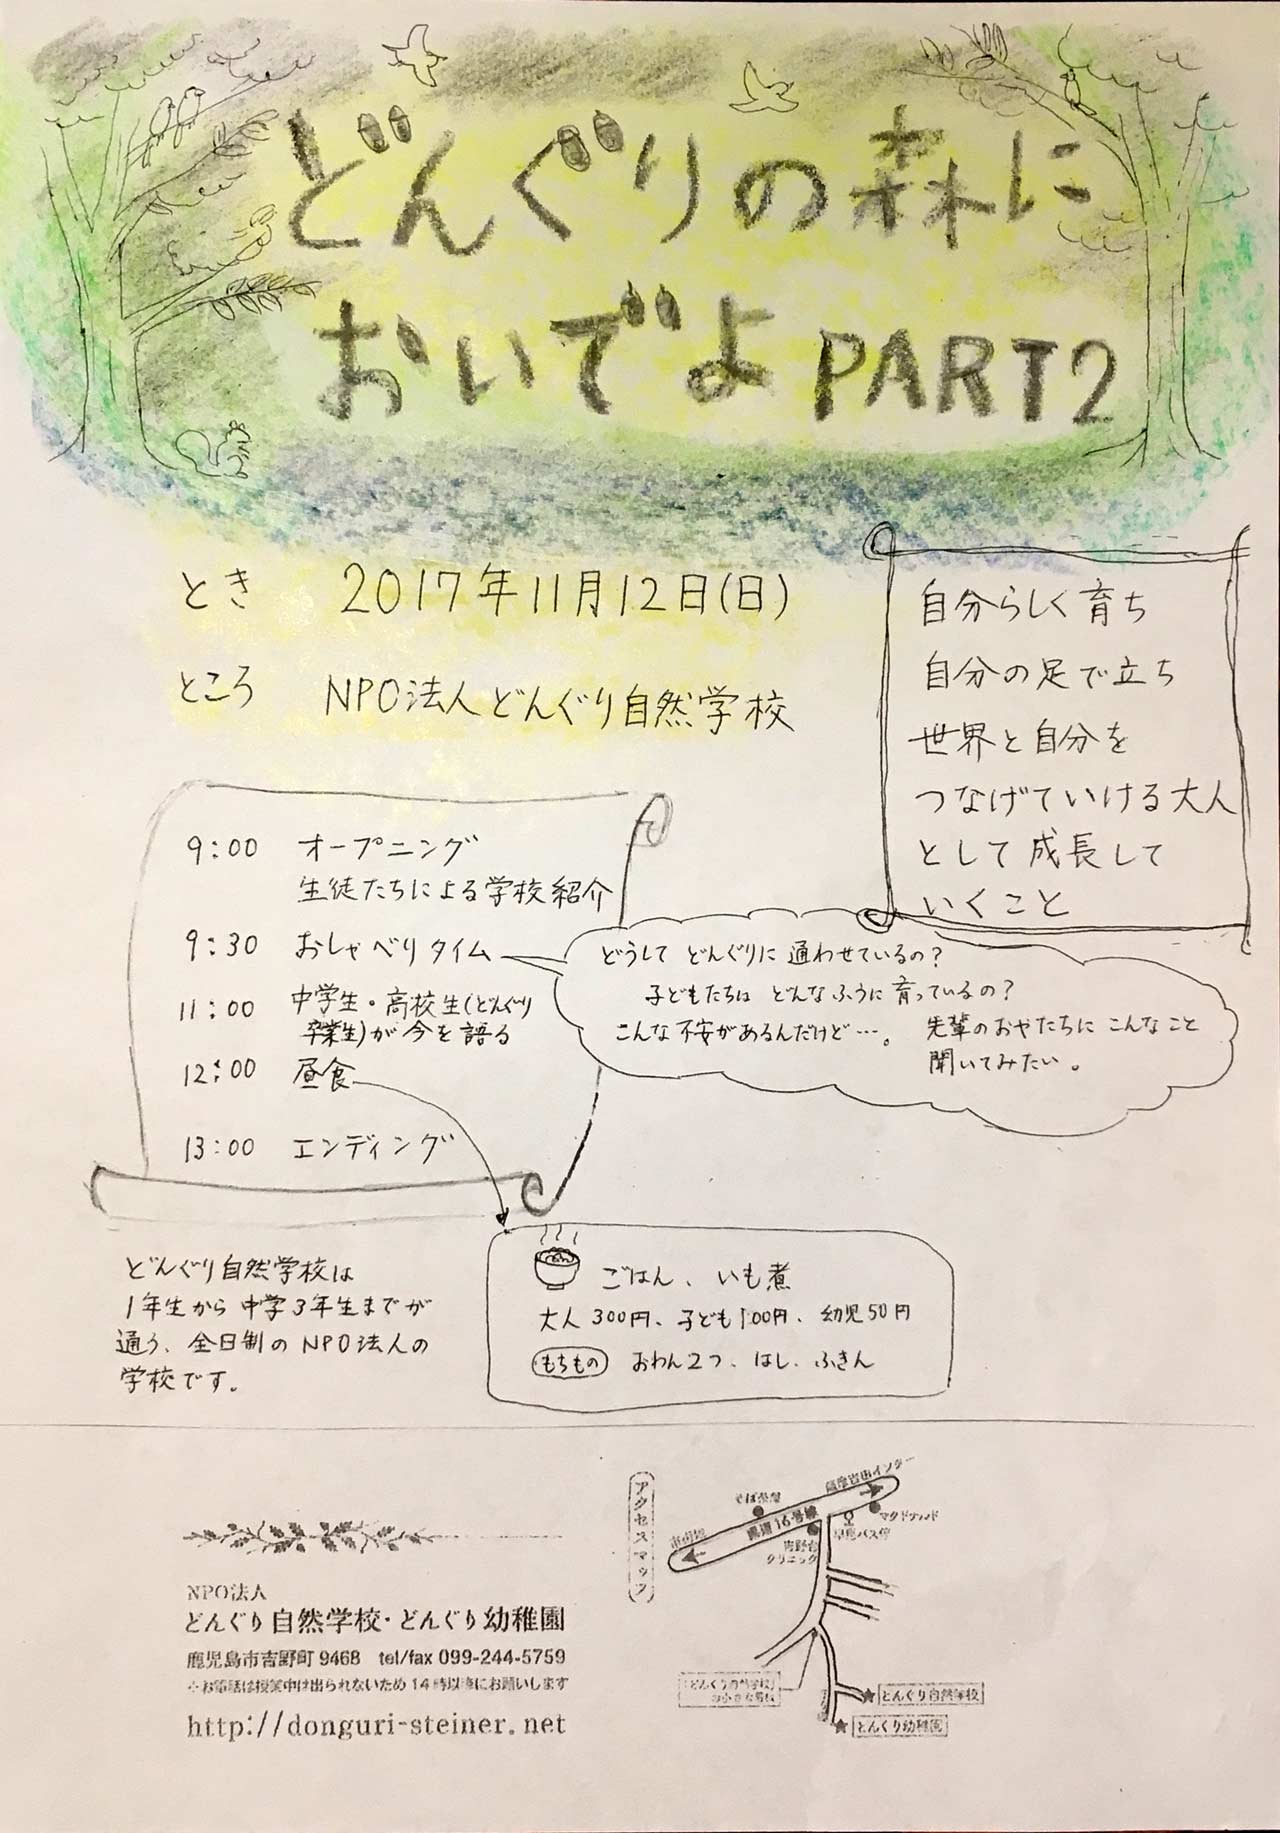 どんぐりの森に
おいでよ PART2
とき 2017年11月12日(日)
ところ NPO法人どんぐり自然学校
自分らしく育ち
自分の足で立ち
世界と自分を
つなげていける大人
として成長して
いくこと
9:00 オープニング
生徒たちによる学校紹介
9:30 おしゃべりタイム
11:00 中学生・高校生(どんぐり
卒業生)が今を語る
12:00 昼食
13:00 エンディング
どうして どんぐりに 通わせているの?
子どもたちは どんなふうに 育っているの?
こんな不安があるんだけど…。
先輩のおやたちに こんなこと
聞いてみたい。
ごはん、いも煮
大人300円、子ども100円、幼児50円
もちもの おわん2つ、はし、ふきん
どんぐり自然学校は
1年生から中学3年生までが
通う、全日制のNPO法人の
学校です。
NPO法人
どんぐり自然学校・どんぐり幼稚園
鹿児島市吉野町9468 tel/fax 099-244-5759
※お電話は授業中は出られないため14時以降にお願いします
http://donguri-steiner.net
アクセスマップ
薩摩吉田インター
マクドナルド
県道16号線
吉野台
クリニック
市街地
「どんぐり自然学校」
の小さな看板
どんぐり自然学校
どんぐり幼稚園